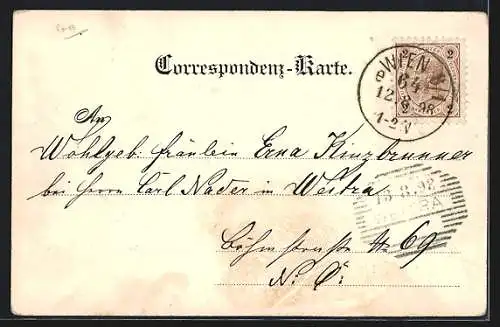 Correspondenz-Karte.
2 2
WIEN
64
12.8.98
1-2V
2
An
Wohlgeb. Fräulein Erna Kinzbrunner
bei Herrn Carl Nader in Weitra
Böhmstraße # 69
N. Ö.
13.8.98